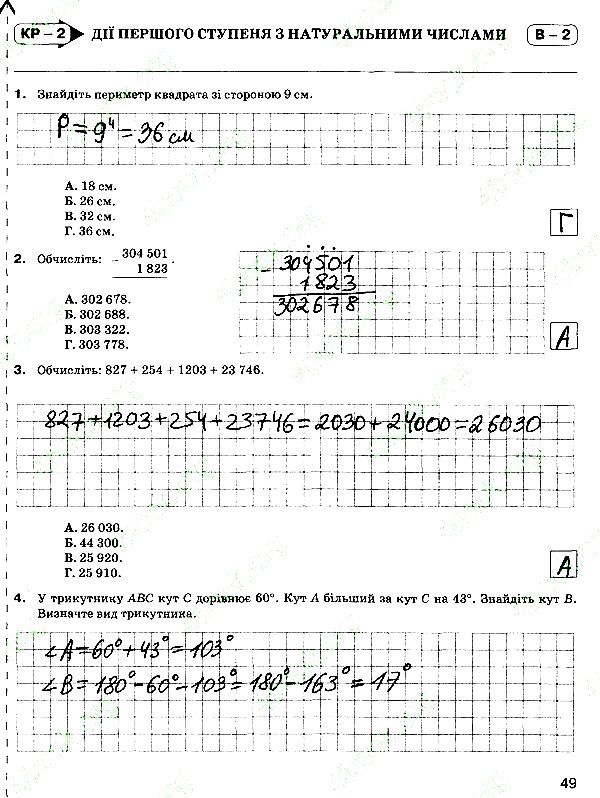 КР – 2 ДІЇ ПЕРШОГО СТУПЕНЯ З НАТУРАЛЬНИМИ ЧИСЛАМИ В – 2
1. Знайдіть периметр квадрата зі стороною 9 см.
P = 9⁴ = 36 см
А. 18 см.
Б. 26 см.
В. 32 см.
Г. 36 см.
Г
2. Обчисліть: – 304 501
1 823 .
– 304501
1823
302678
А. 302 678.
Б. 302 688.
В. 303 322.
Г. 303 778.
А
3. Обчисліть: 827 + 254 + 1203 + 23 746.
827+1203+254+23746=2030+24000=26030
А. 26 030.
Б. 44 300.
В. 25 920.
Г. 25 910.
А
4. У трикутнику ABC кут C дорівнює 60°. Кут A більший за кут C на 43°. Знайдіть кут B.
Визначте вид трикутника.
∠A=60°+43°=103°
∠B=180°-60°-103°=180°-163°=17°
49